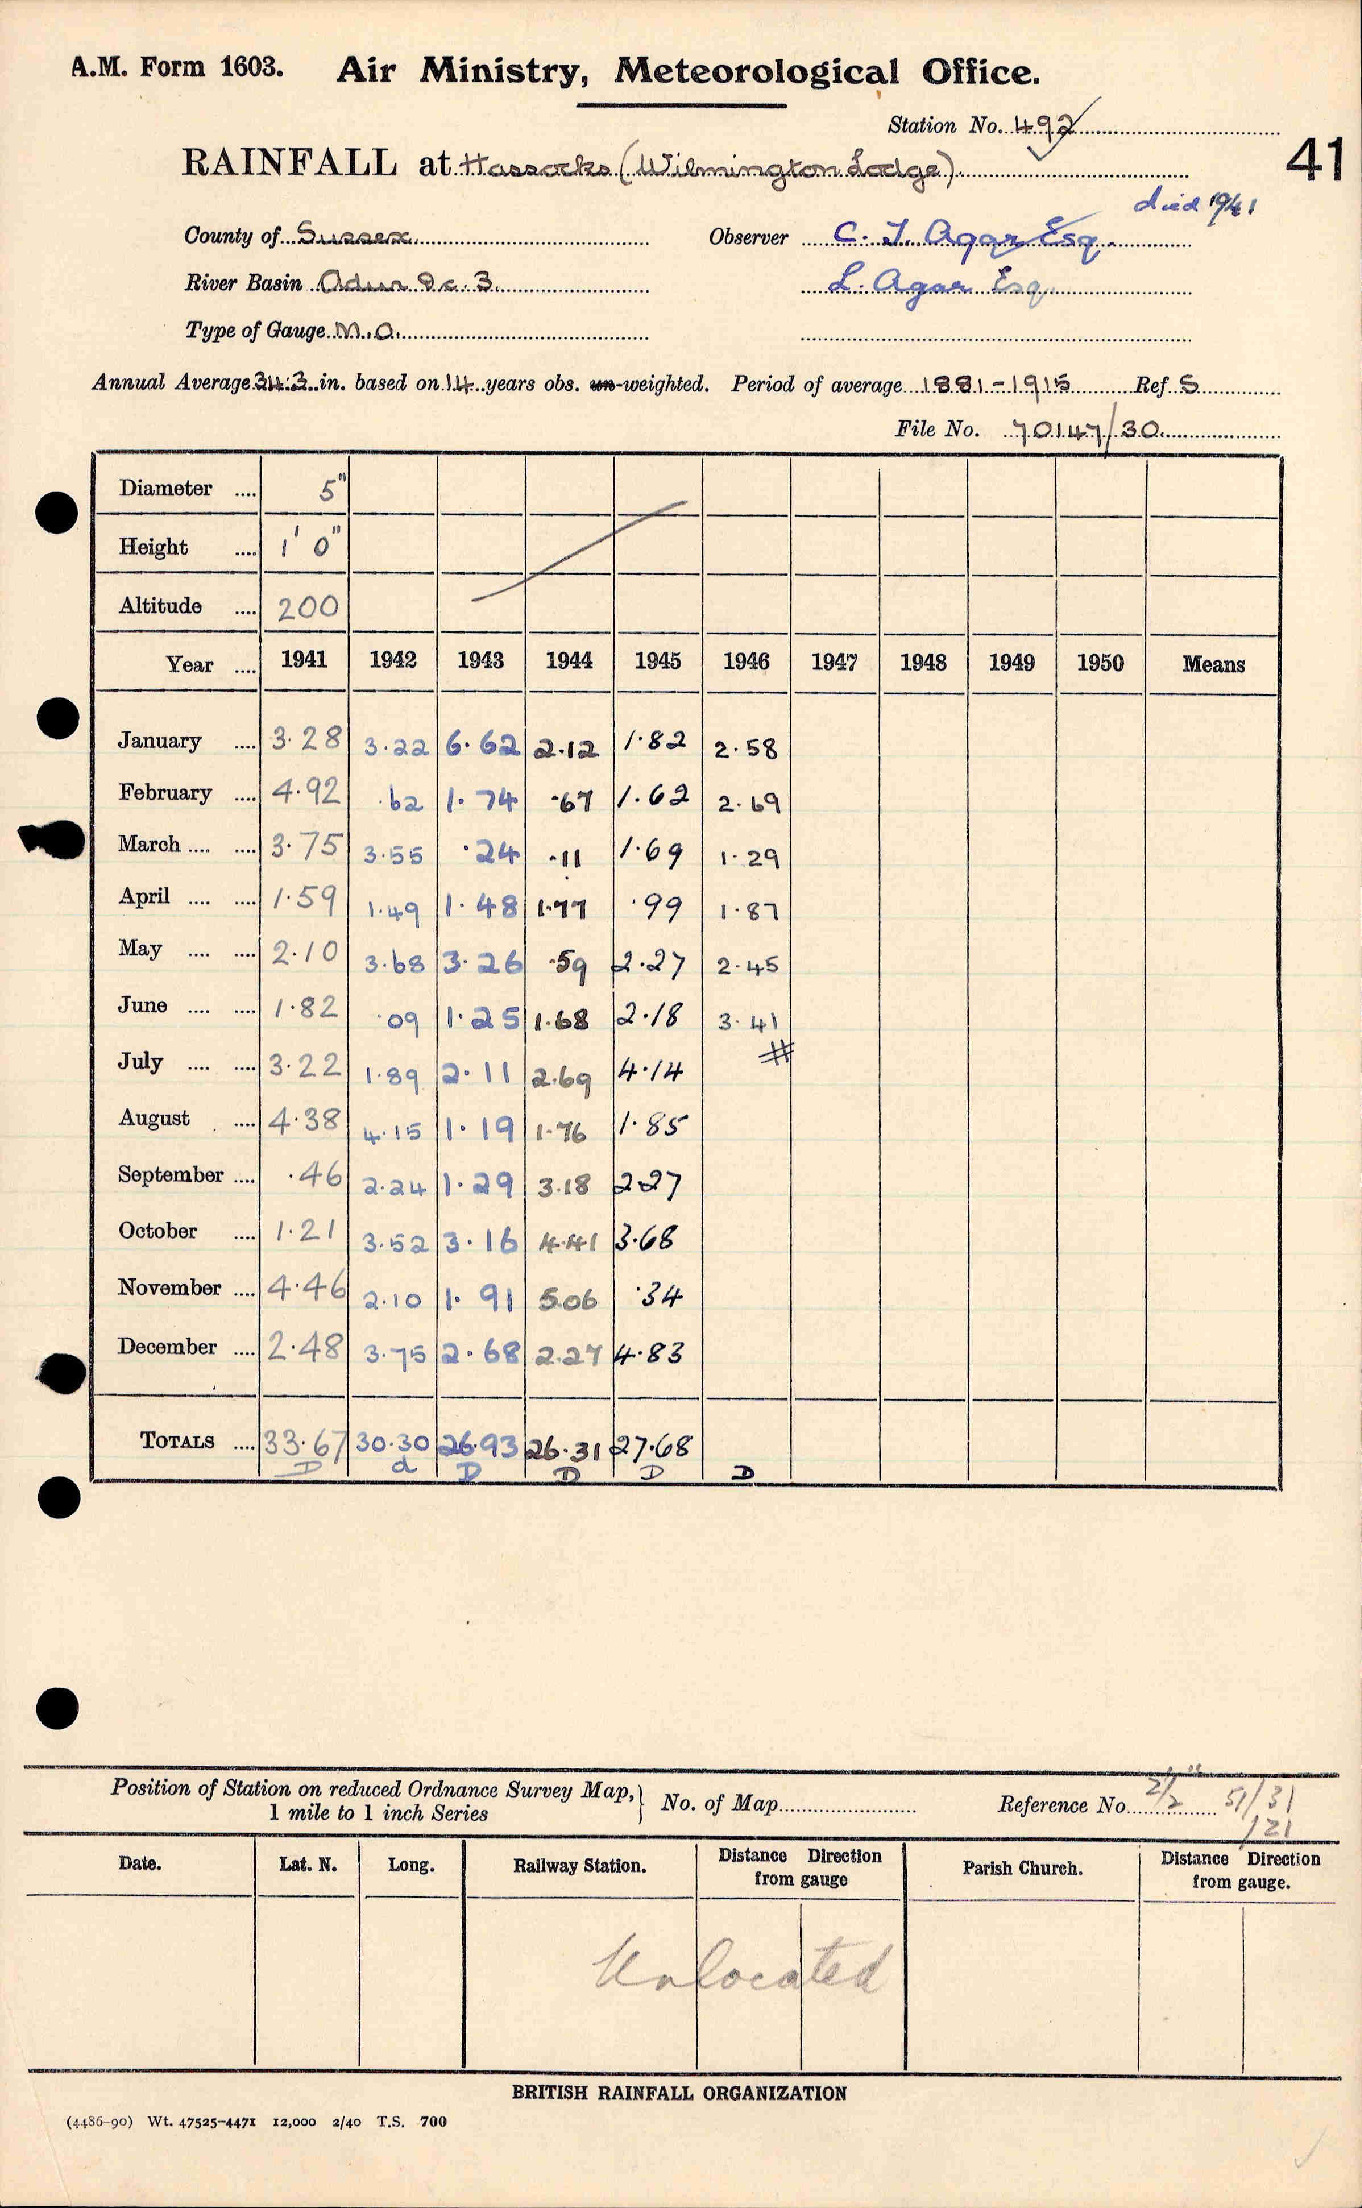 A.M. Form 1603. Air Ministry, Meteorological Office.
Station No. 492
41
RAINFALL at Hassocks (Wilmington Lodge)
died 1941
County of Sussex Observer C. T. Agar Esq.
River Basin Adur Dc. 3 L. Agar Esq.
Type of Gauge M.O.
Annual Average 34.3 in. based on 14 years obs. un-weighted. Period of average 1881-1915 Ref S
File No. 70147/30
Diameter .... 5"
Height .... 1' 0"
Altitude .... 200
Year .... 1941 1942 1943 1944 1945 1946 1947 1948 1949 1950 Means
January .... 3.28 3.22 6.62 2.12 1.82 2.58
February .... 4.92 .62 1.74 .67 1.62 2.69
March .... .... 3.75 3.55 .24 .11 1.69 1.29
April .... .... 1.59 1.49 1.48 1.77 .99 1.87
May .... .... 2.10 3.68 3.26 .59 2.27 2.45
June .... .... 1.82 .09 1.25 1.68 2.18 3.41
#
July .... .... 3.22 1.89 2.11 2.69 4.14
August .... 4.38 4.15 1.19 1.76 1.85
September .... .46 2.24 1.29 3.18 2.27
October .... 1.21 3.52 3.16 4.41 3.68
November .... 4.46 2.10 1.91 5.06 .34
December .... 2.48 3.75 2.68 2.27 4.83
TOTALS .... 33.67 30.30 26.93 26.31 27.68
D d D D D D
Position of Station on reduced Ordnance Survey Map, 1 mile to 1 inch Series } No. of Map Reference No. 2½" 51/31
/21
Date. Lat. N. Long. Railway Station. Distance Direction from gauge Parish Church. Distance Direction from gauge.
Unlocated
BRITISH RAINFALL ORGANIZATION
(4486-90) Wt. 47525-4471 12,000 2/40 T.S. 700